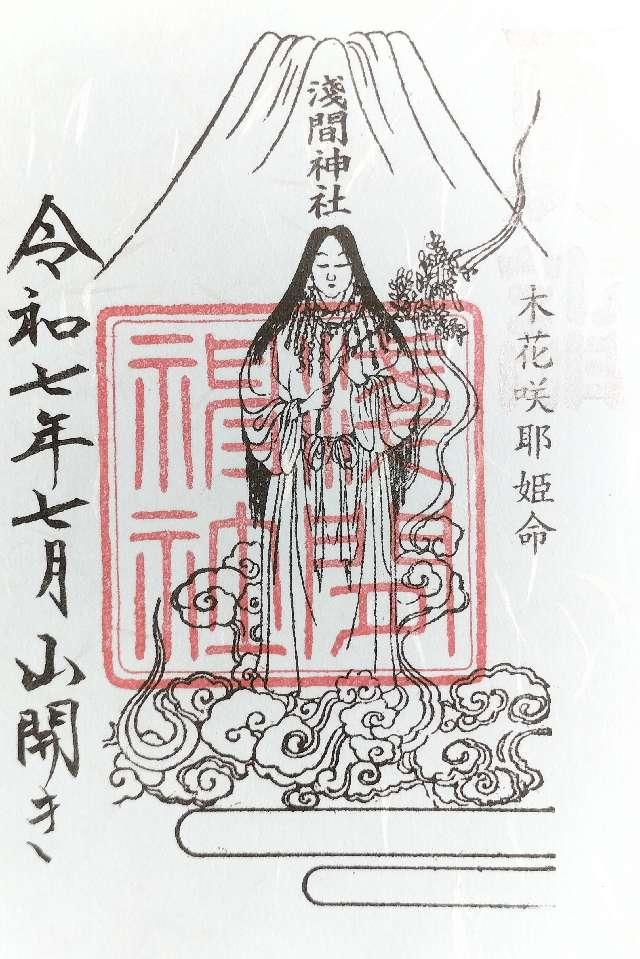 淺間神社
木花咲耶姫命
淺間神社
令和七年七月山開き